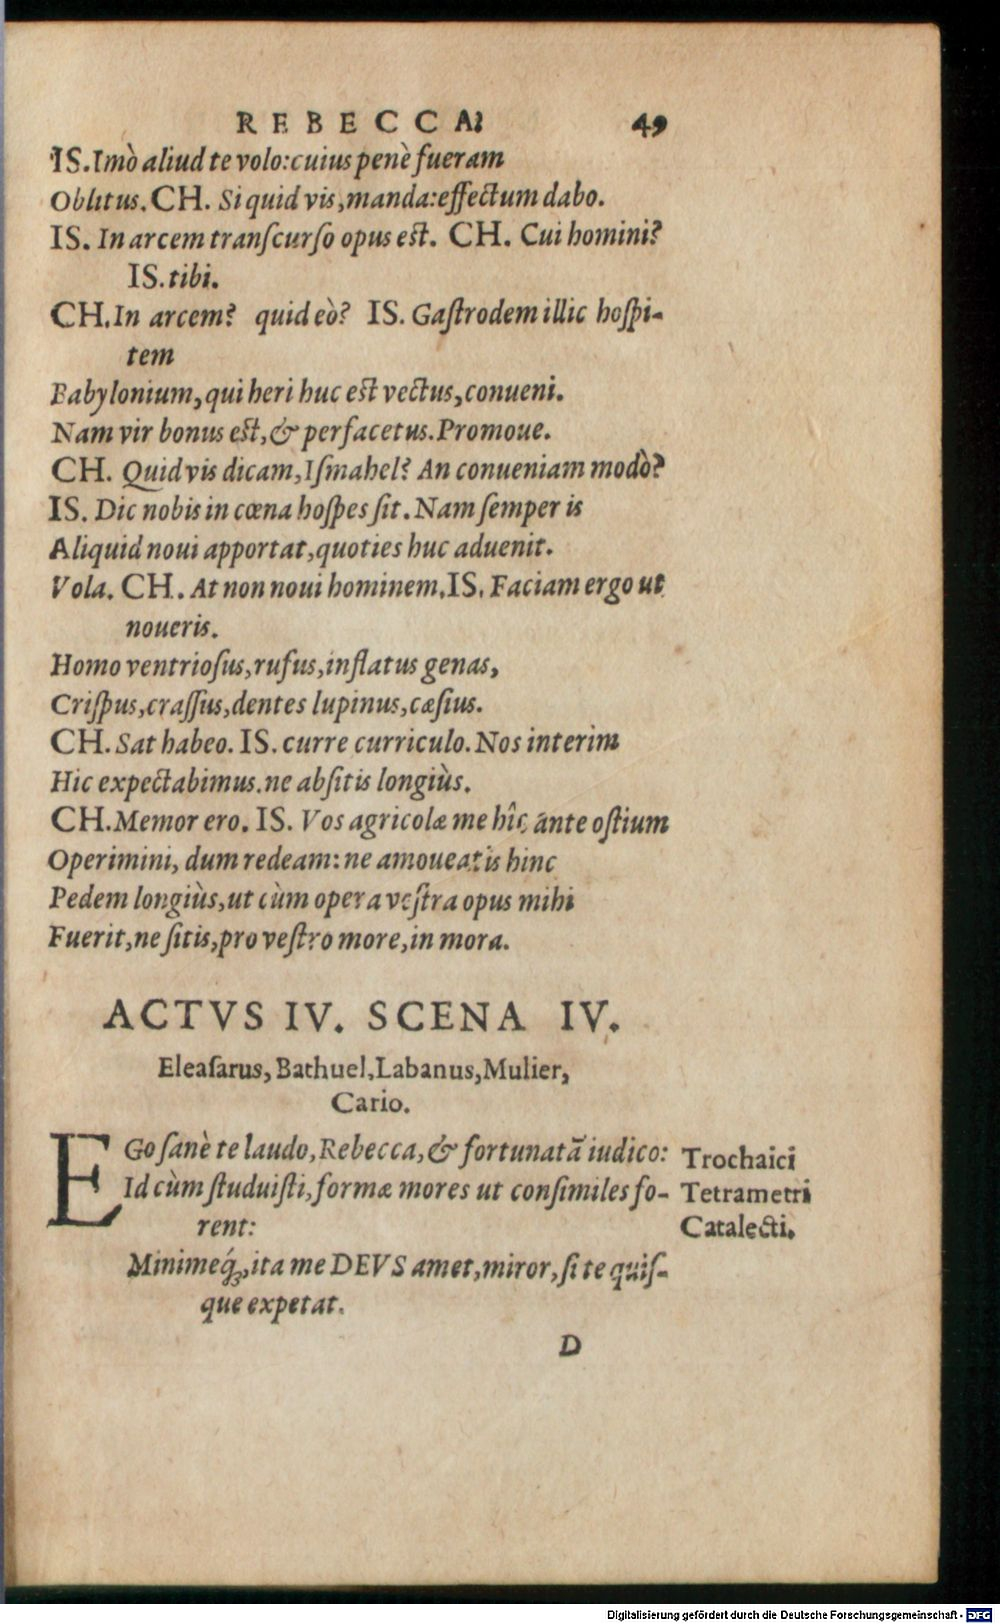 REBECCA. 49
IS. Imò aliud te volo: cuius penè fueram
Oblitus. CH. Si quid vis, manda: effectum dabo.
IS. In arcem transcurso opus est. CH. Cui homini?
IS. tibi.
CH. In arcem? quid eò? IS. Gastrodem illic hospi-
tem
Babylonium, qui heri huc est vectus, conueni.
Nam vir bonus est, & perfacetus. Promoue.
CH. Quid vis dicam, Ismahel? An conueniam modò?
IS. Dic nobis in cœna hospes sit. Nam semper is
Aliquid noui apportat, quoties huc aduenit.
Vola. CH. At non noui hominem. IS. Faciam ergo ut
noueris.
Homo ventriosus, rufus, inflatus genas,
Crispus, crassus, dentes lupinus, cæsius.
CH. Sat habeo. IS. curre curriculo. Nos interim
Hic expectabimus. ne absitis longiùs.
CH. Memor ero. IS. Vos agricolæ me hîc ante ostium
Operimini, dum redeam: ne amoueatis hinc
Pedem longiùs, ut cùm opera vestra opus mihi
Fuerit, ne sitis, pro vestro more, in mora.
ACTVS IV. SCENA IV.
Eleasarus, Bathuel, Labanus, Mulier,
Cario.
EGo sanè te laudo, Rebecca, & fortunatā iudico:
Id cùm studuisti, formæ mores ut consimiles fo-
rent:
Minimeq́;, ita me DEVS amet, miror, si te quis-
que expetat.
Trochaici
Tetrametri
Catalecti.
D
Digitalisierung gefördert durch die Deutsche Forschungsgemeinschaft - DFG